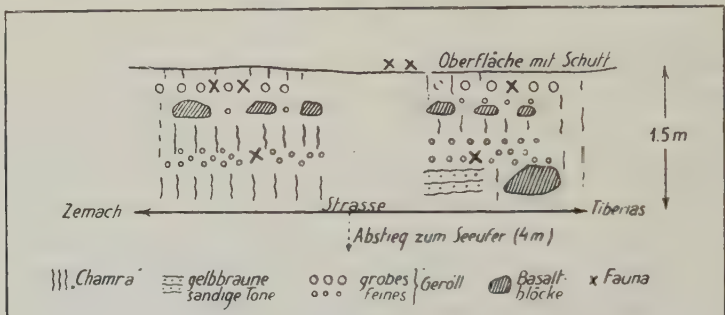 Oberfläche mit Schutt
1.5 m
Zemach
Strasse
Tiberias
Abstieg zum Seeufer (4m)
„Chamra"
gelbbraune
sandige Tone
grobes
feines
Geröll
Basalt-
blöcke
x Fauna